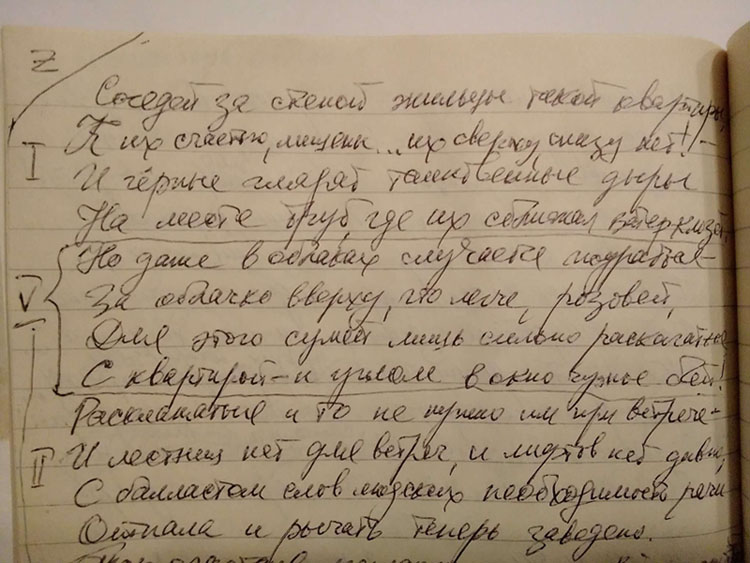 Z
Соседей за стеной жильцы такой квартиры,
I К их счастью, лишены... их сверху, снизу нет! –
И чёрные глядят таинственные дыры
На месте труб, где их сближал ватерклозет.
V Но даже в облаках случается подраться –
За облачко вверху, что легче, розовей,
Для этого сумей лишь сильно раскачаться
С квартирой – и углом в окно чужое бей!
Раскланяться и то не нужно им при встрече –
II И лестниц нет для встреч, и лифтов нет давно,
С балластом слов людских необходимость речи
Отпала и рычать теперь заведено.